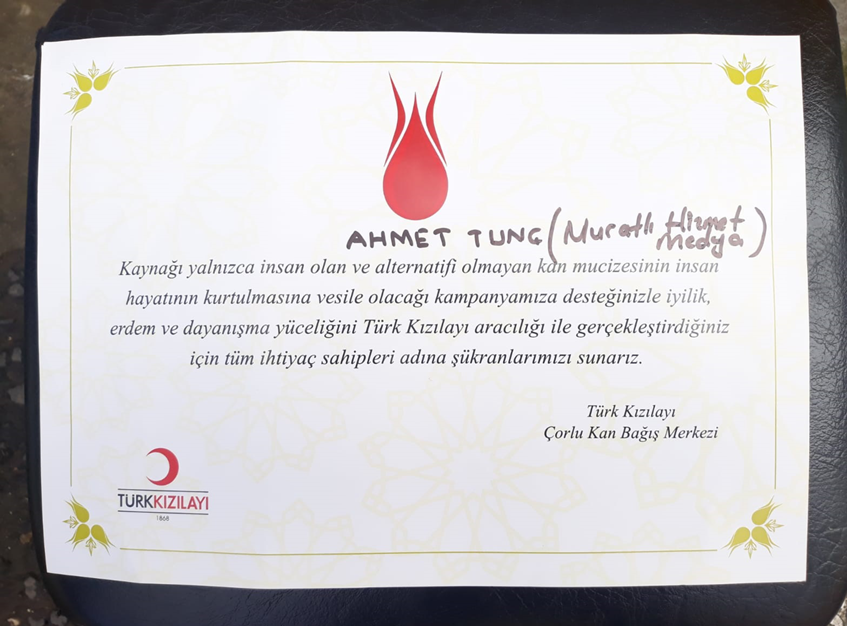 AHMET TUNG (Muratlı Hizmet
Medya)
Kaynağı yalnızca insan olan ve alternatifi olmayan kan mucizesinin insan
hayatının kurtulmasına vesile olacağı kampanyamıza desteğinizle iyilik,
erdem ve dayanışma yüceliğini Türk Kızılayı aracılığı ile gerçekleştirdiğiniz
için tüm ihtiyaç sahipleri adına şükranlarımızı sunarız.
Türk Kızılayı
Çorlu Kan Bağış Merkezi
TÜRKKIZILAYI
1868